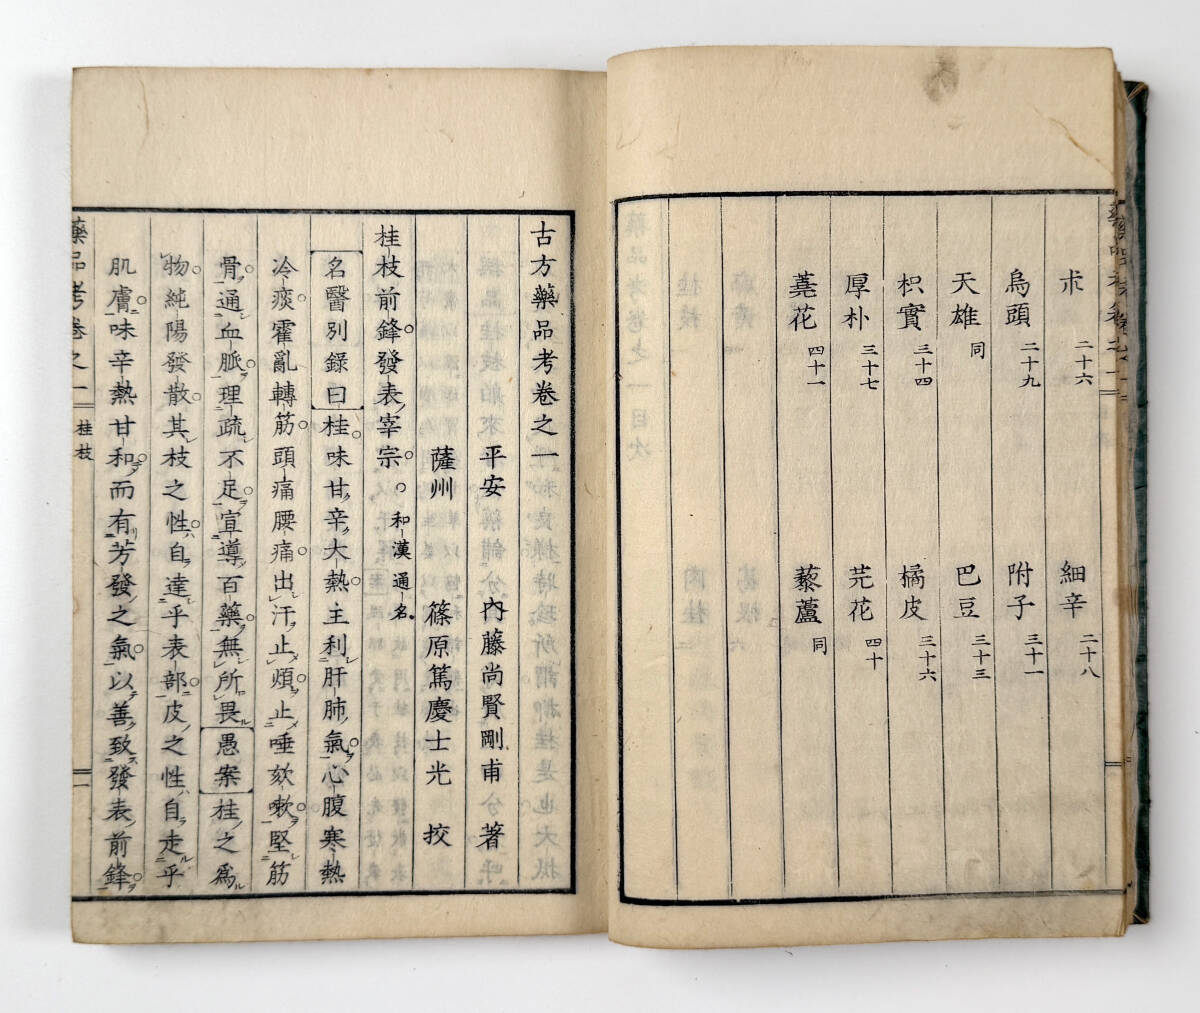 朮 二十六 細辛 二十八
烏頭 二十九 附子 三十一
天雄 同 巴豆 三十三
枳實 三十四 橘皮 三十六
厚朴 三十七 芫花 四十
蕘花 四十一 藜蘆 同
古方藥品考卷之一
平安 內藤尚賢剛甫 著
薩州 篠原篤慶士光 挍
桂枝前鋒發表宰宗。○和漢通名。
名醫別錄曰桂味甘辛大熱主利肝肺氣心腹寒熱
冷痰霍亂轉筋頭痛腰痛出汗止煩止唾欬嗽堅筋
骨通血脈理疏不足宣導百藥無所畏愚案桂之爲
物純陽發散其枝之性自達乎表部皮之性自走乎
肌膚味辛熱甘和而有芳發之氣以善致發表前鋒
藥品考卷之一 桂枝 一